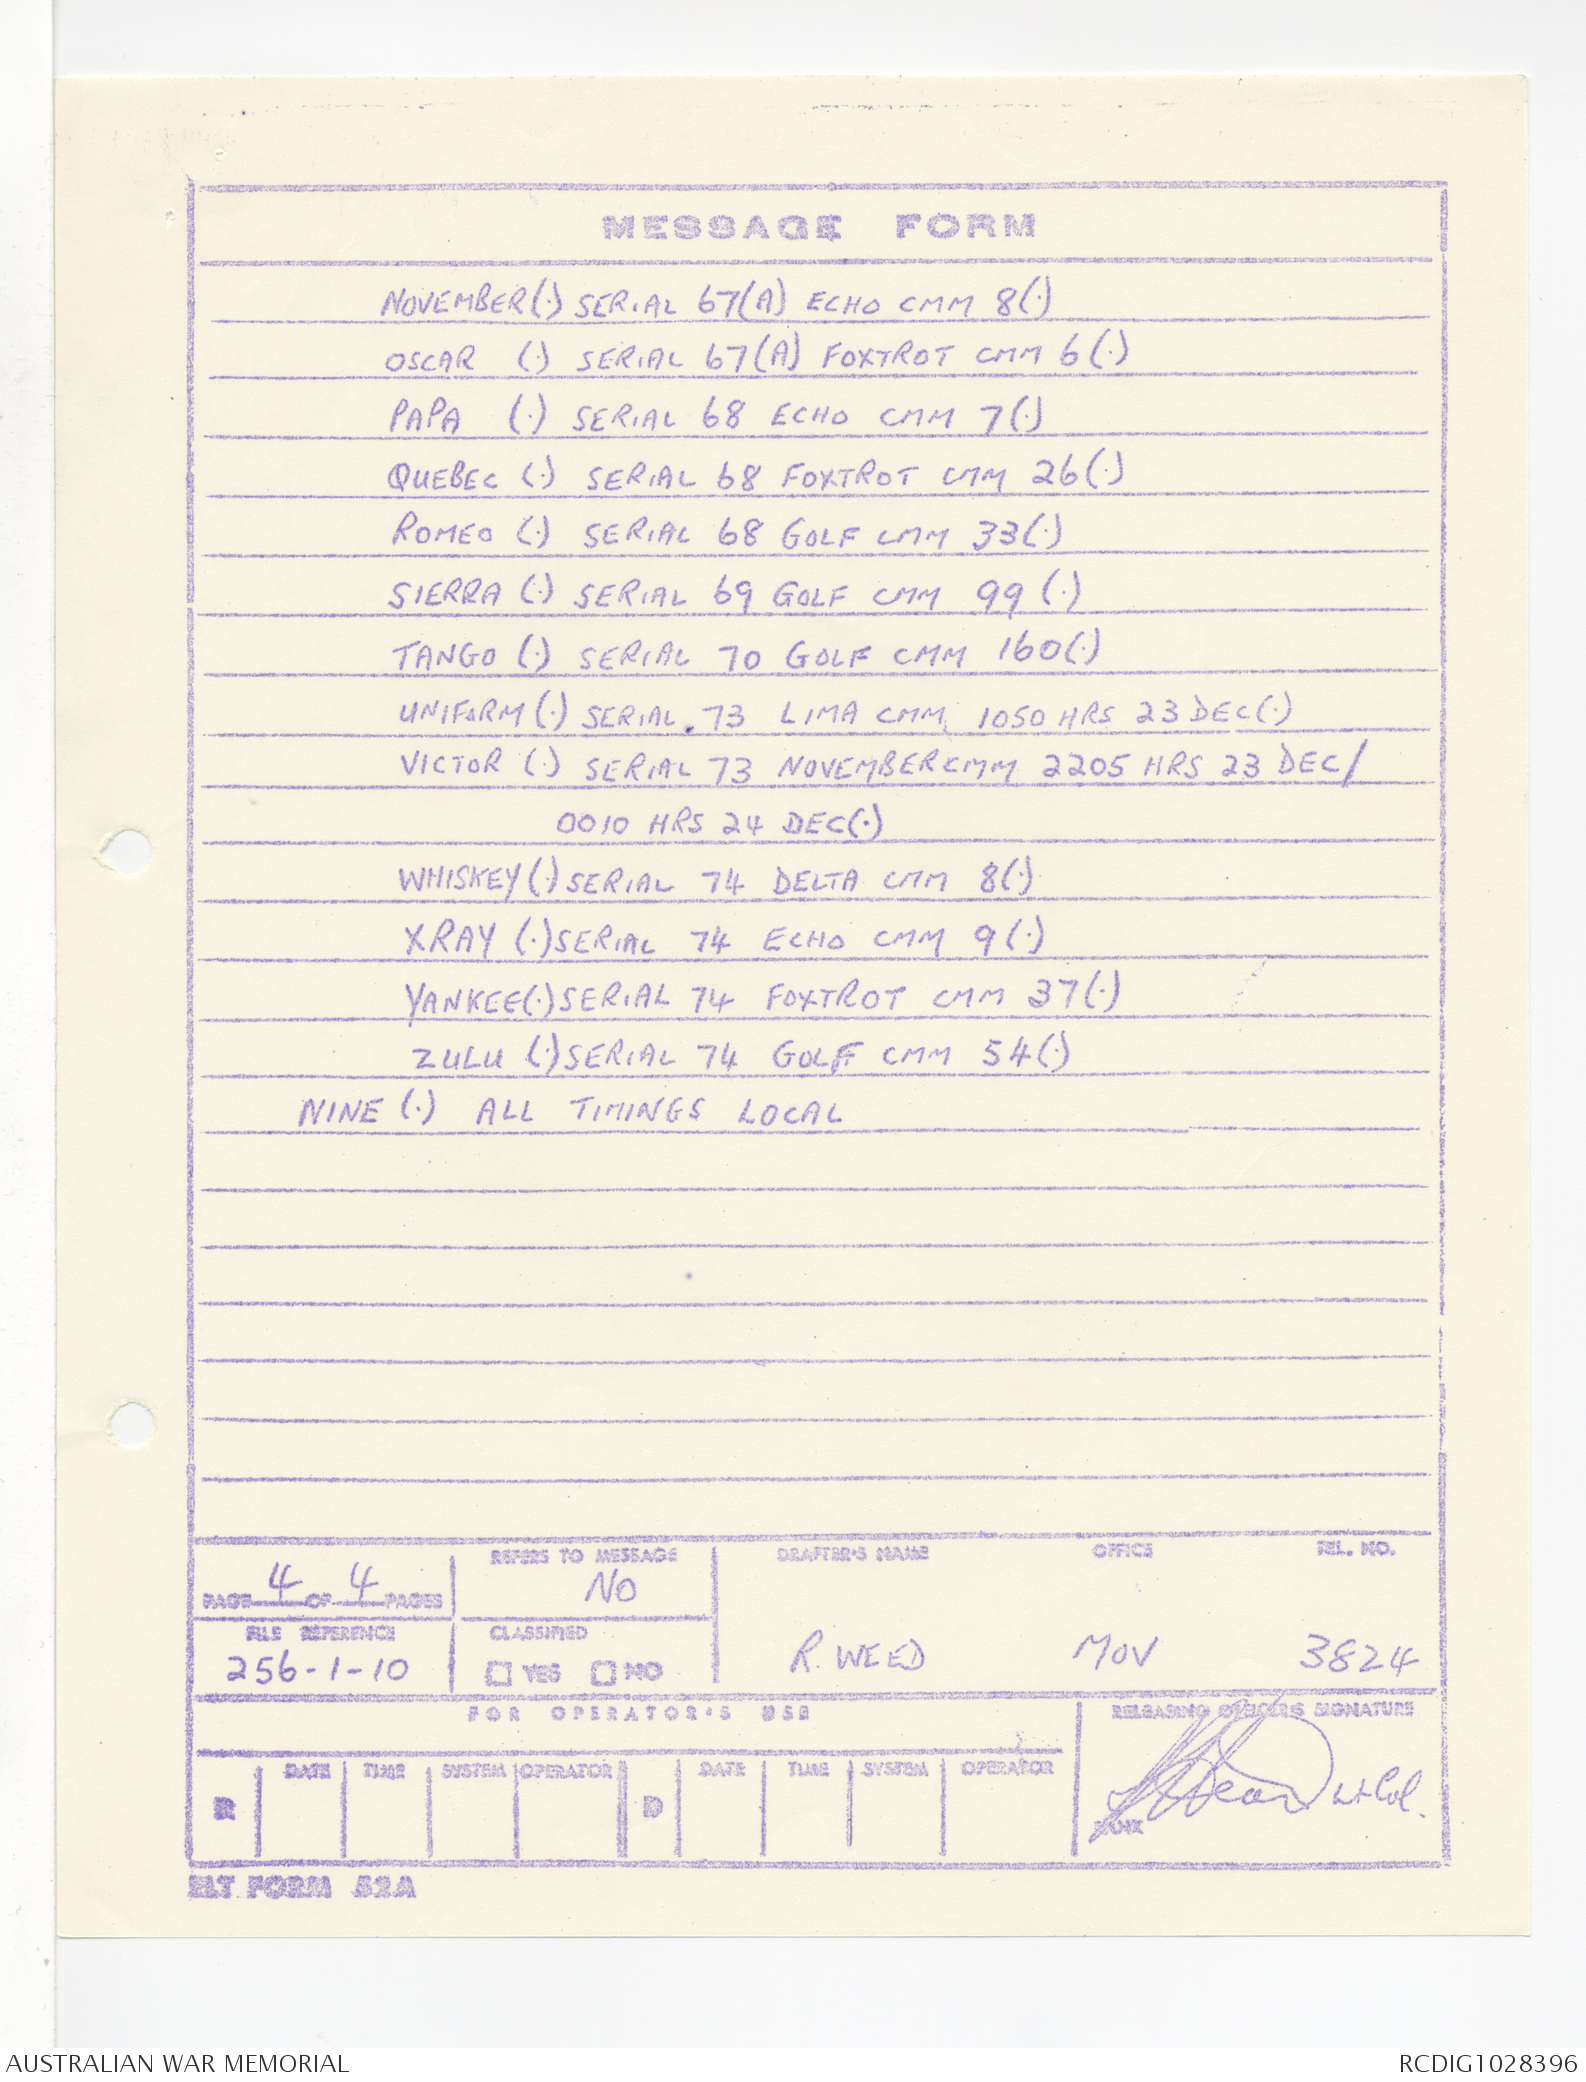 MESSAGE FORM
NOVEMBER(.) SERIAL 67(A) ECHO CMM 8(.)
OSCAR (.) SERIAL 67(A) FOXTROT CMM 6(.)
PAPA (.) SERIAL 68 ECHO CMM 7(.)
QUEBEC (.) SERIAL 68 FOXTROT CMM 26(.)
ROMEO (.) SERIAL 68 GOLF CMM 33(.)
SIERRA (.) SERIAL 69 GOLF CMM 99 (.)
TANGO (.) SERIAL 70 GOLF CMM 160(.)
UNIFORM(.) SERIAL 73 LIMA CMM 1050 HRS 23 DEC(.)
VICTOR (.) SERIAL 73 NOVEMBER CMM 2205 HRS 23 DEC/
0010 HRS 24 DEC(.)
WHISKEY(.) SERIAL 74 DELTA CMM 8(.)
XRAY (.) SERIAL 74 ECHO CMM 9(.)
YANKEE(.) SERIAL 74 FOXTROT CMM 37(.)
ZULU (.) SERIAL 74 GOLF CMM 54(.)
NINE (.) ALL TIMINGS LOCAL
REFERS TO MESSAGE DRAFTER'S NAME OFFICE TEL. NO.
PAGE 4 OF 4 PAGES NO
FILE REFERENCE CLASSIFIED
256-1-10 YES NO R. WEED MOV 3824
FOR OPERATOR'S USE RELEASING OFFICER'S SIGNATURE
DATE TIME SYSTEM OPERATOR DATE TIME SYSTEM OPERATOR
R D Lt Col.
RANK
FORM 52A
AUSTRALIAN WAR MEMORIAL RCDIG1028396